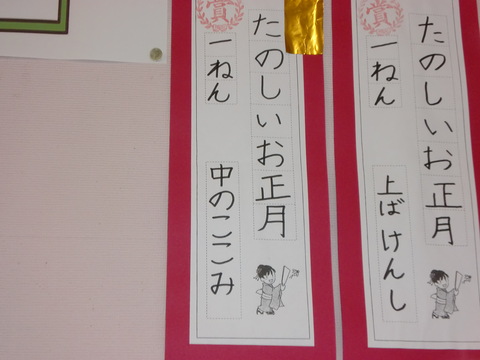 たのしいお正月
賞
一ねん 上ば けんし
たのしいお正月
賞
一ねん 中の ここみ